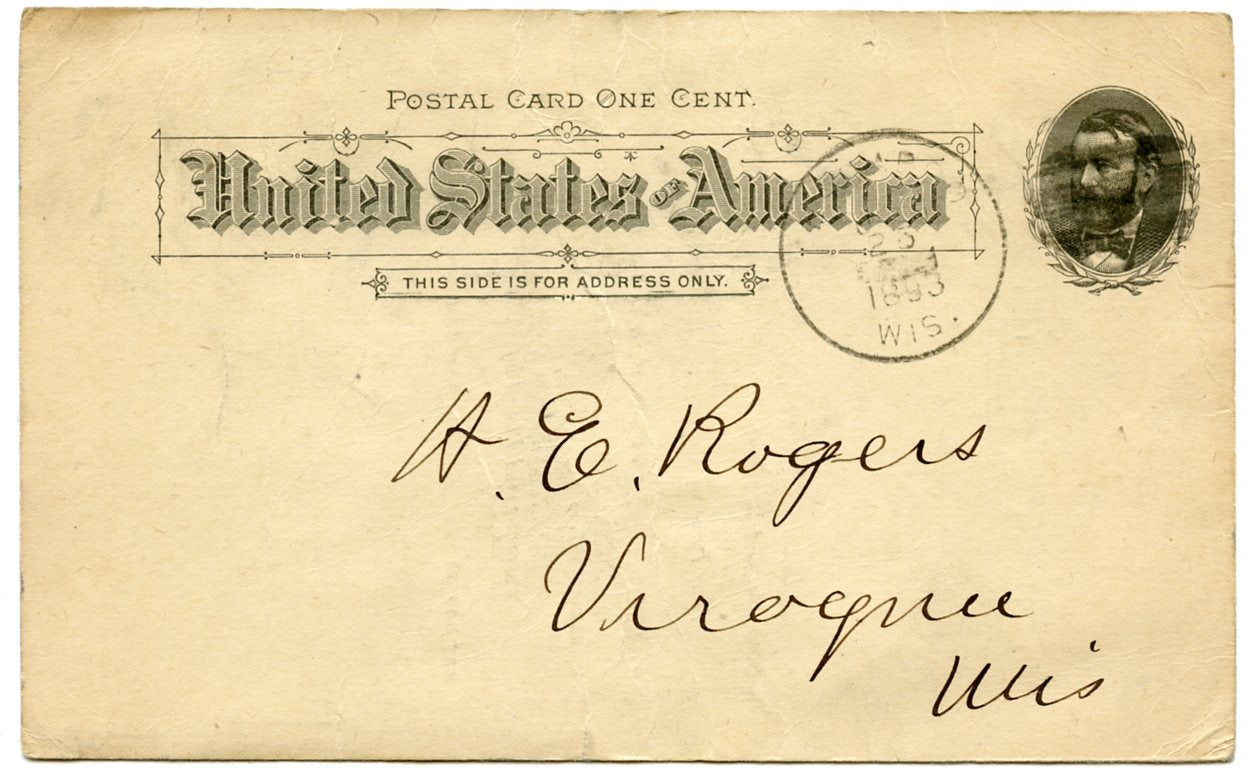 POSTAL CARD ONE CENT.
United States OF America
THIS SIDE IS FOR ADDRESS ONLY.
1893
WIS.
H. E. Rogers
Viroqua
Wis